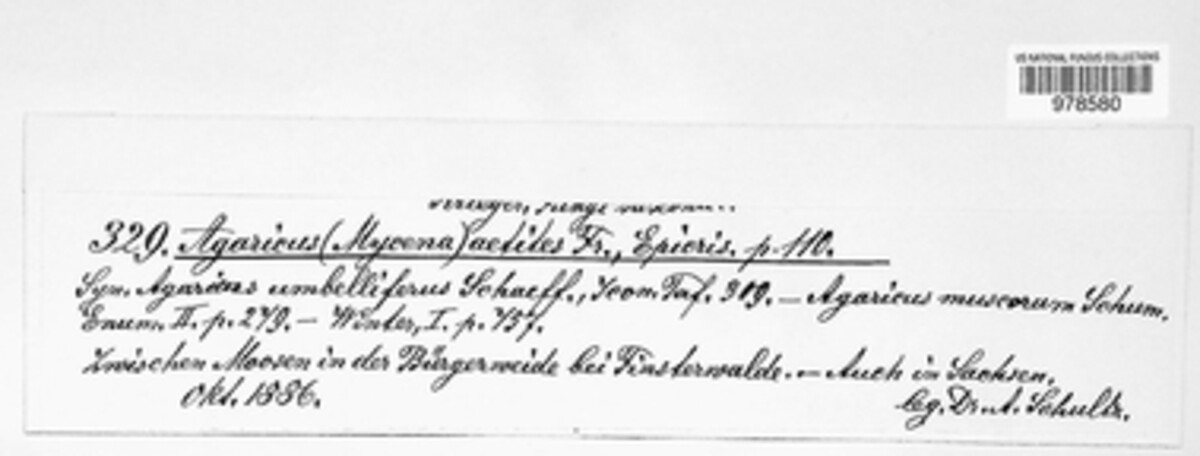 US NATIONAL FUNGUS COLLECTIONS
978580
329. Agaricus (Mycena) aetites Fr., Epicris. p. 110.
Syn. Agaricus umbelliferus Schaeff., Icon. Taf. 309. — Agaricus muscorum Schum.
Enum. II. p. 279. — Winter, I. p. 757.
Zwischen Moosen in der Bürgerweide bei Finsterwalde. — Auch in Sachsen.
Okt. 1886.
lg. Dr. A. Schultz.